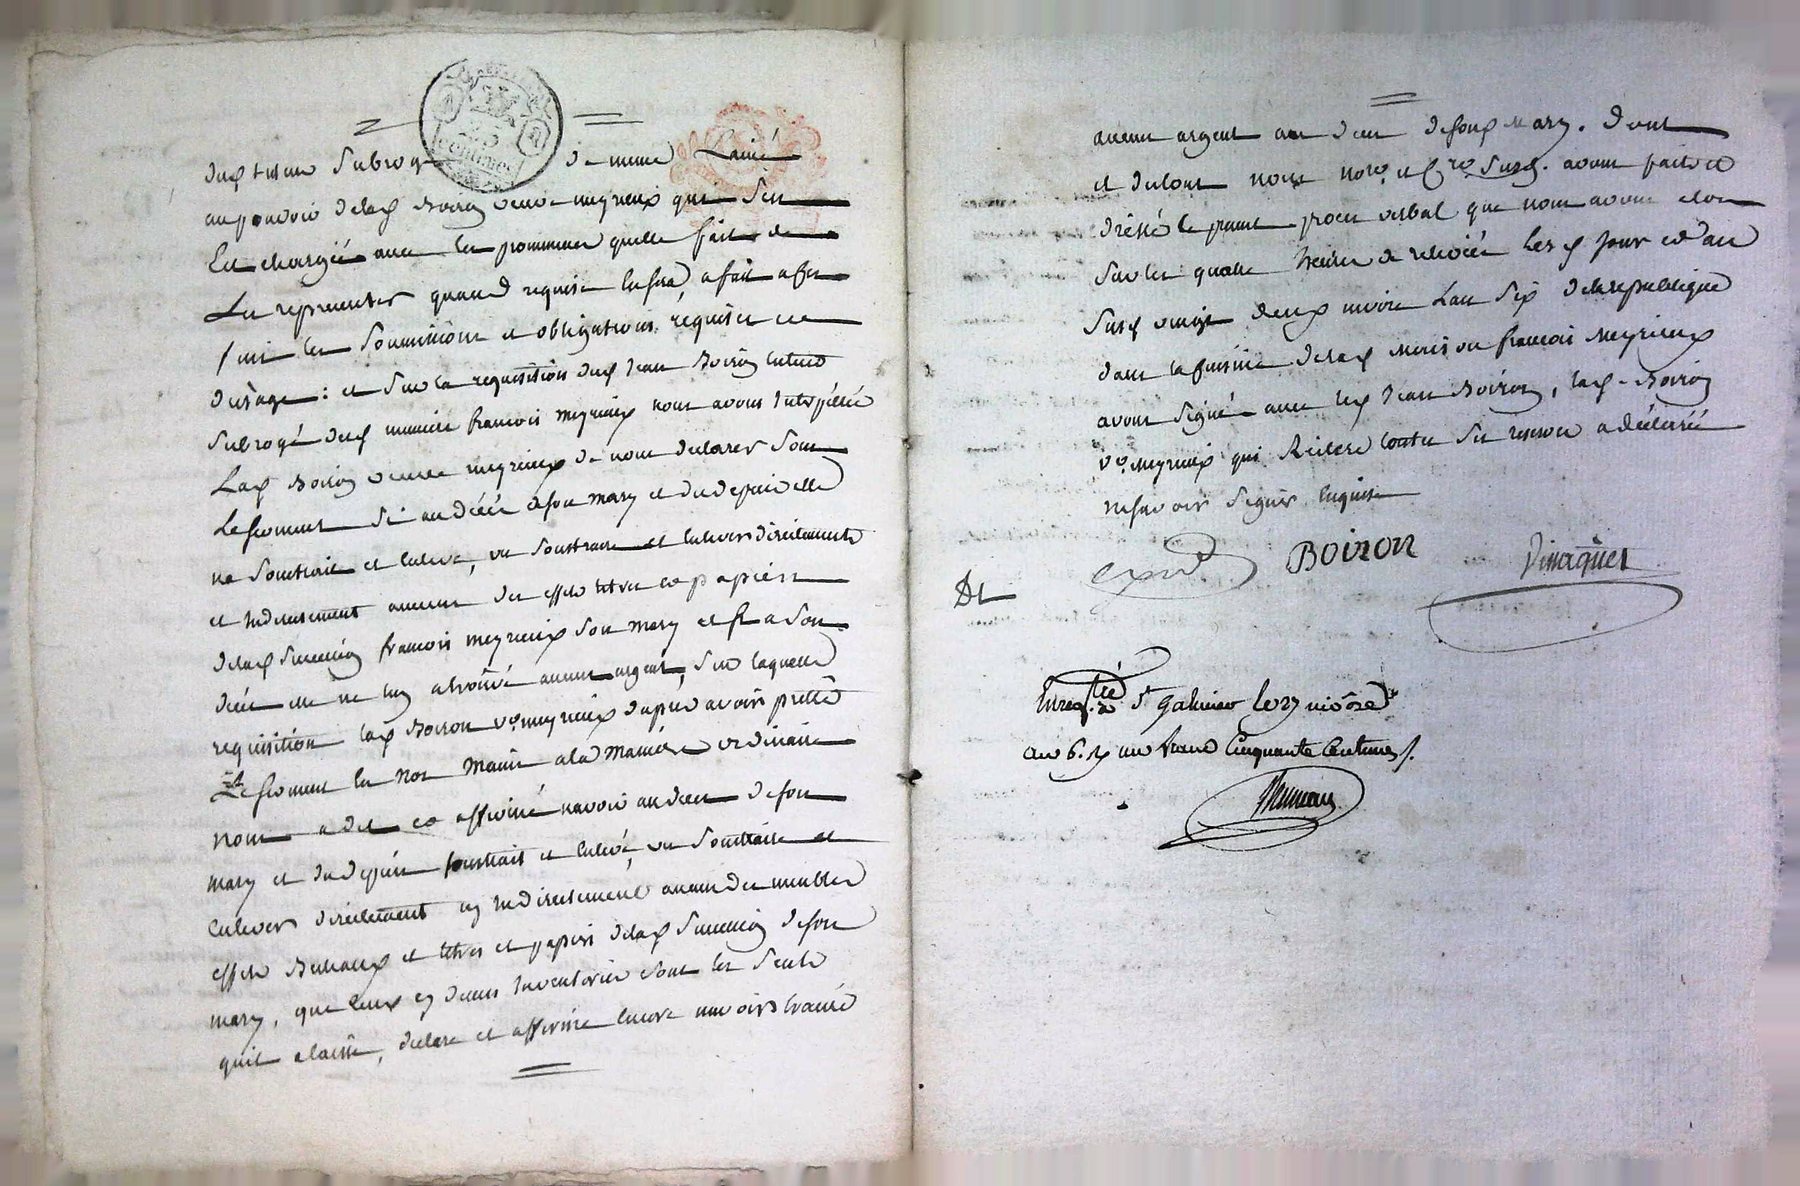 dud tuteur Subrogé de meme Laissé
au pouvoir de lad Boiron veuve meyrieux qui S'en
Est chargée avec les promesses quelle fait de
Les representer quand requise En sera, a fait a ces
fins les Soumissions et obligations requises
d'usage : et Sur la requisition dud Jean Boiron tuteur
Subrogé dud mineur françois meyrieux nous avons Interpellée
Lad Boiron veuve meyrieux de nous declarer Sous
Le serment Si au décès de son mary et du depuis elle
na Soustrait et Enlevé, ou Soustraire et Enlever directement
et Indirectement aucuns des effets titres et papiers
de lad Succession françois meyrieux Son mary et Si a Son
décès elle ne luy a trouvé aucun argent, Sur laquelle
requisition lad Boiron ve. meyrieux d'apres avoir pretté
Le serment En nos mains a la maniere ordinaire
nous a dit et affirmé navoir au deces de son
mary et du depuis soustrait et Enlevé, ou Soustraire et
Enlever directement ny Indirectement aucun des meubles
effets Bestiaux et titres et papiers de lad Succession de son
mary, que Ceux cy dessus Inventoriés sont les Seuls
quil a laissé, declare et affirme Encore navoir trouvé
aucun argent au deces de son d mary. Dont
et du tout nous nore. et Susd. avons fait et
dressé le present proces verbal que nous avons clos
Sur les quatre heures de relevée Les d Jour et an
Susd vingt deux nivose L'an Six de la republique
dans la cuisine de lad maison françois Meyrieux
avons Signé avec led Jean Boiron, lad Boiron
ve. meyrieux qui Reitere toutes Ses reserves a déclaré
ne savoir Signer Enquise
BOIRON
Vinaquet
Enreg.tré à St Galmier le 27 nivôse
an 6. R un franc Cinquante Centimes /.